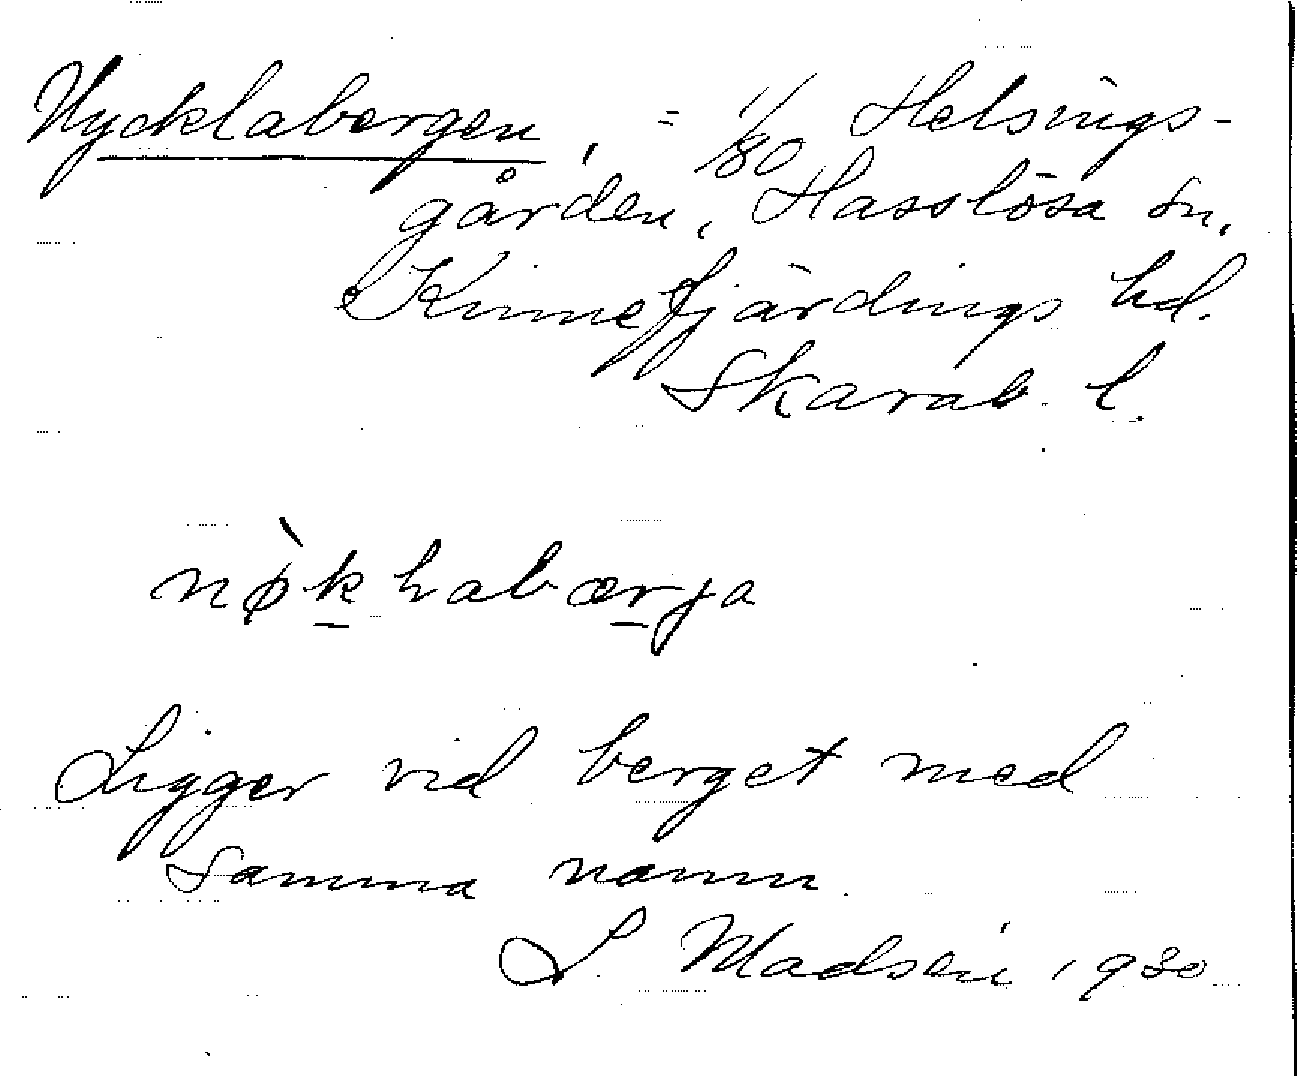 Nycklabergen, = 1/80 Helsings-
gården, Hasslösa sn,
Kinnefjärdings hd.
Skarab. l.
nø̀khabærja
Ligger vid berget med
samma namn.
S. Madsén 1930